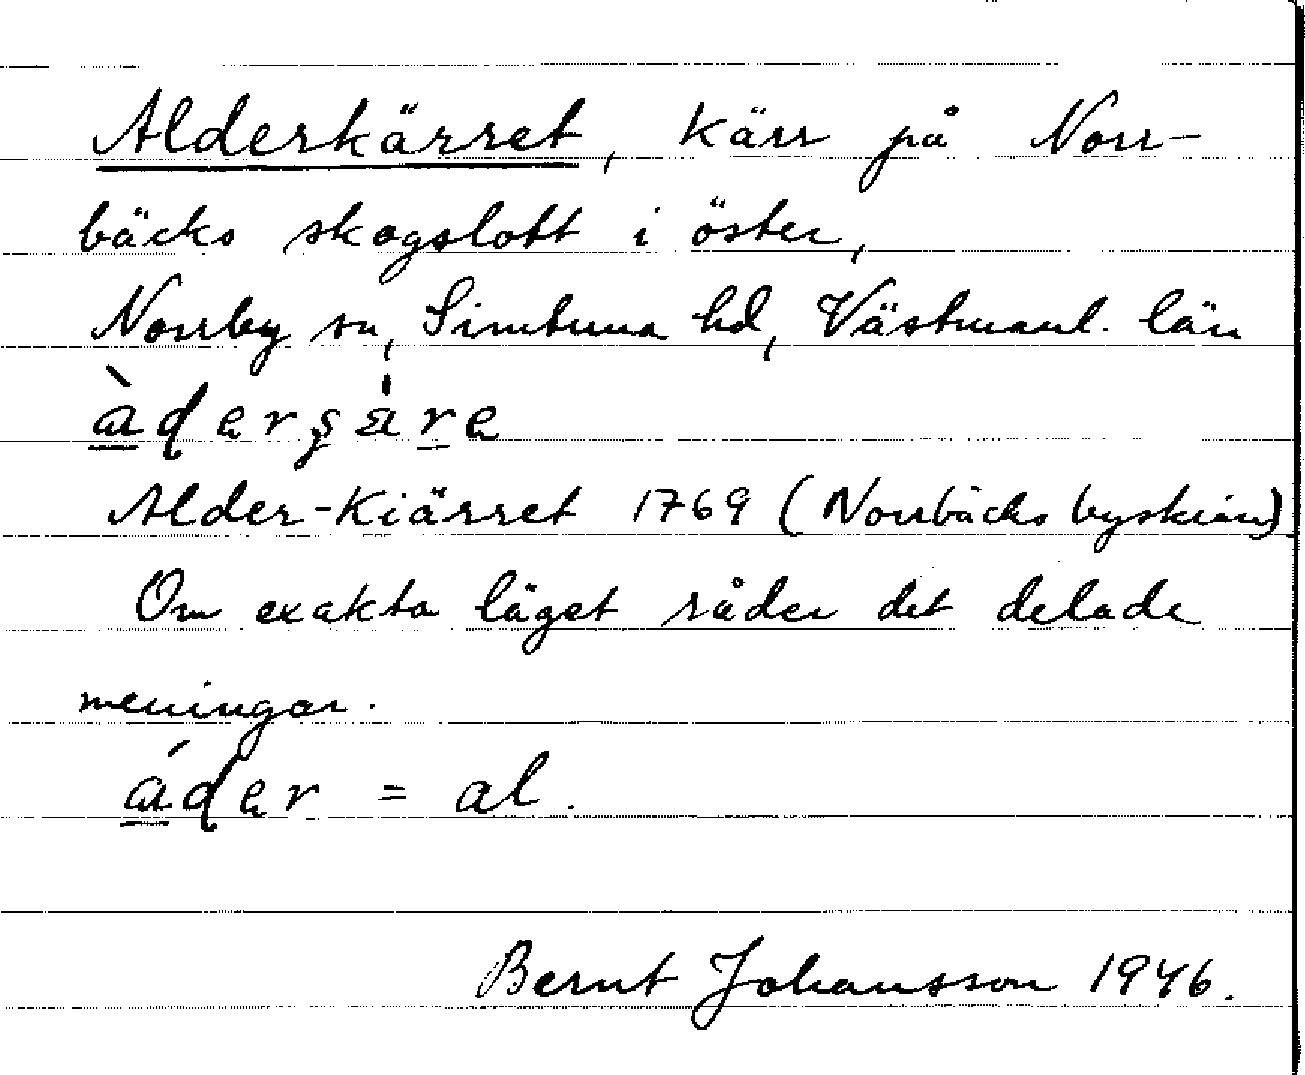 Alderkärret, kärr på Norr-
bäcks skogslott i öster,
Norrby sn, Simtuna hd, Västmanl. län
àdersä̀re
Alder-Kiärret 1769 (Norrbäcks byskian)
Om exakta läget råder det delade
meningar.
áder = al.
Bernt Johansson 1946.